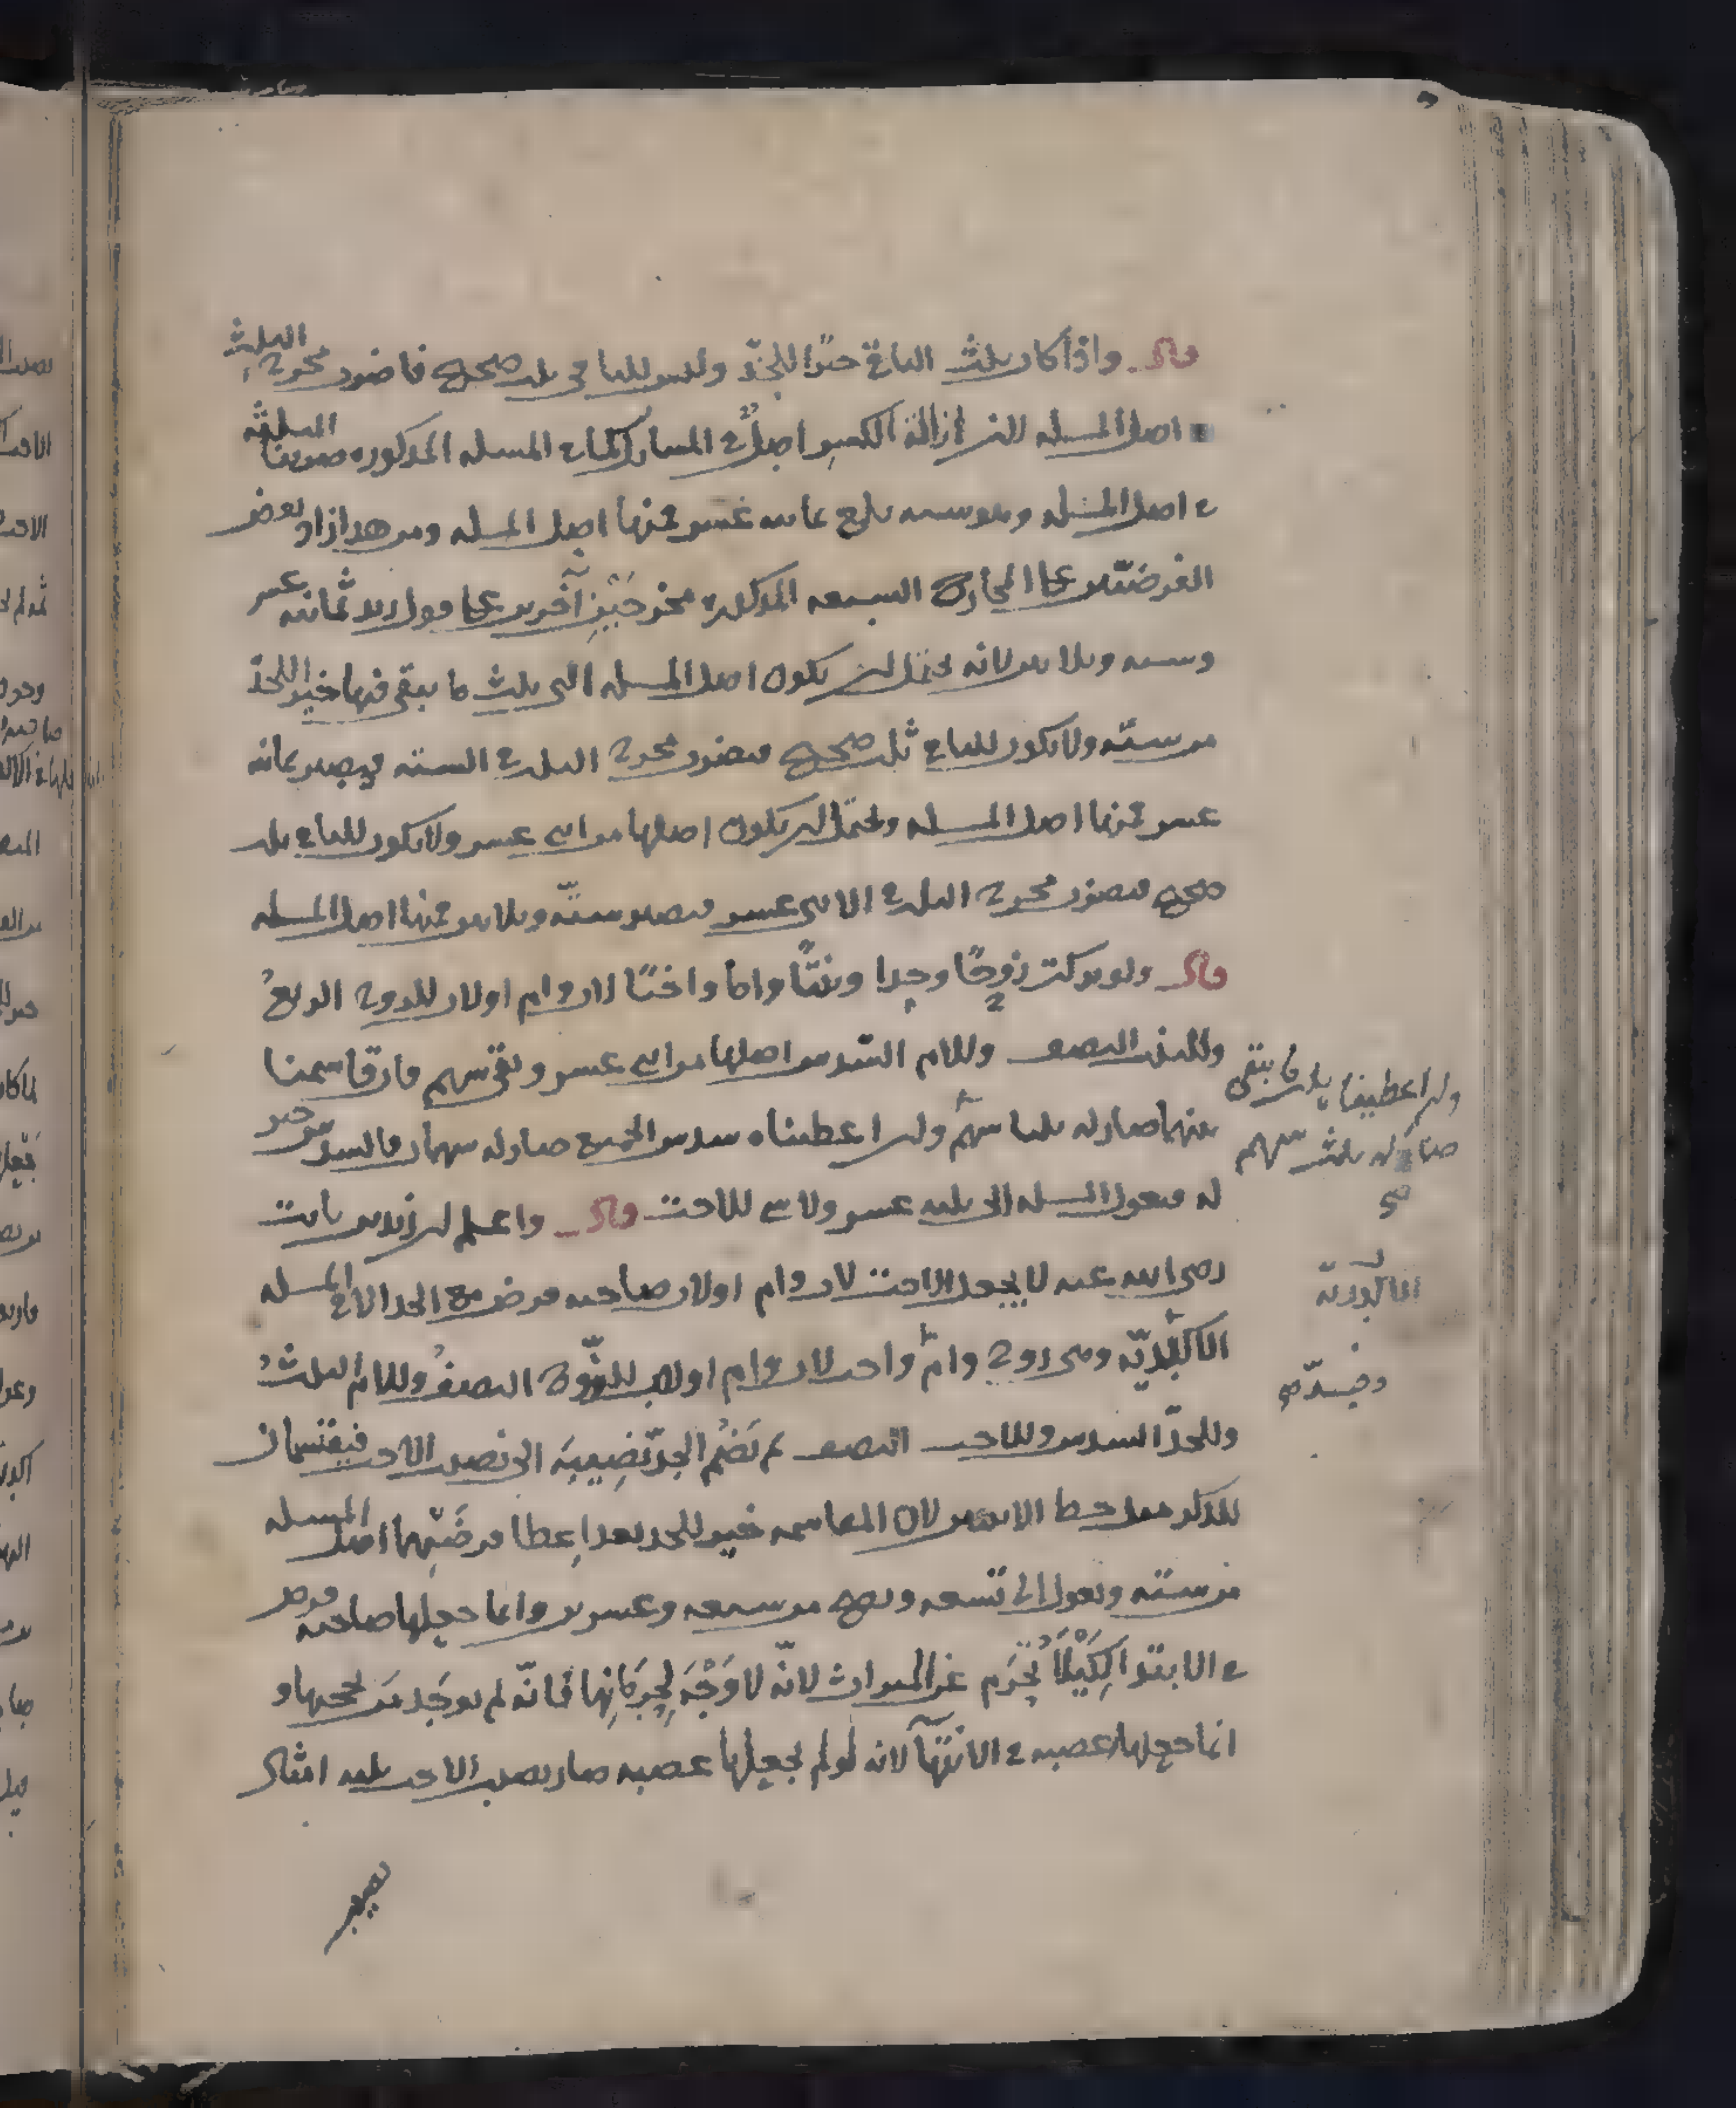 قال واذا كان ثلث الباقي خيرا للجدّ وليس للباقي ثلث صحيح فاضرب مخرج الثلث
في اصل المسله لان ازالة الكسر اصل في المسايل كلها في المسله المذكوره ضربنا الثلثة
في اصل المسله وهو سته بلغ ثمانيه عشر فمنها اصل المسله ومن هذا زاد بعض
الفرضيّين على المخارج السبعه المذكوره مخرجَيْنِ آخرين على قول زيد ثمانيه عشر
وسته وثلاثين لانه يحتمل ان يكون اصل المسله التي ثلث ما يبقى فيها خير للجدّ
من ستّه ولا يكون للباقي ثلث صحيح فيضرب مخرج الثلث في السته فيصير ثمانيه
عشر فمنها اصل المسله ويحتمل ان يكون اصلها من اثني عشر ولا يكون للباقي ثلث
صحيح فيضرب مخرج الثلث في الاثني عشر فيصير ستّه وثلاثين فمنها اصل المسله
قال ولو تركت زوجًا وجدا وبنتًا واما واختًا لاب وام او لاب للزوج الربعُ
وللبنت النصف وللام السّدس اصلها من اثني عشر وبقي سهم فان قاسمنا
بينهما صار له ثلثا سهم وان اعطيناه سدس الجميع صار له سهمان فالسدس خير
له فتعول المسله الى ثلثه عشر ولا شي للاخت قال واعلم ان زيد بن ثابت
رضي الله عنه لا يجعل الاخت لاب وام او لاب صاحبه فرض مع الجد الا في المسله
الاكدريّه وهي زوج وامّ وجد واخت لاب وام او لاب للزّوج النصفُ وللام الثلثُ
وللجدّ السدس وللاخت النصف ثم يَضُم الجدّ نَصِيبَه الى نصيب الاخت فيقتسمان
للذكر مثل حظ الانثيين لان المقاسمه خير للجد بعد اِعطا فرضَيْهما اصل المسله
من ستّه وتعول الى تسعه وتصح من سبعه وعشرين وانما جعلها صاحبه فرض
في الابتدا لِكَيْلَا تُحْرَم عن الميراث لانّه لا وَجْهَ لِحِرمَانِها فانّه لم يوجَد من يحجبها و
انما جعلها عصبه في الانتهآ لانه لو لم يجعلها عصبه صار نصيب الاخت ثلثه امثال
نصيب
وان اعطيناه ثلث ما يبقى
صار له ثلث سهم
صح
الاكدريّه
وجدّ صح